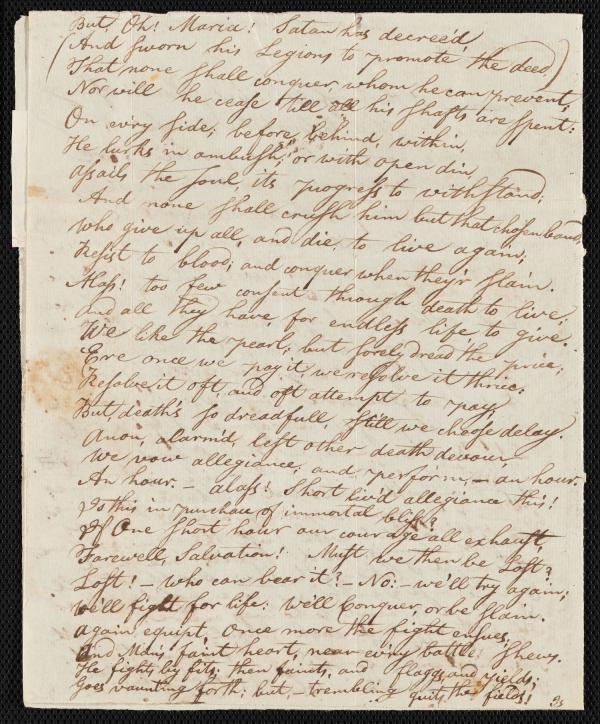 But, Oh! Maria! Satan has decree'd,
(And sworn his Legions to promote the deed,)
That none shall conquer, whom he can prevent,
Nor will he cease till all his shafts are spent:
On ev'ry side; before, behind, within,
He lurks in ambush; or with open din,
Assails the soul, its progress to withstand;
And none shall crush him but that chosen band,
Who give up all, and die, to live again;
Resist to blood; and conquer when they'r slain.
Alass! too few consent through death to live,
And all they have, for endless life to give.
We like the pearl; but sorely dread the price;
Ere once we pay it, we resolve it thrice:
Resolve it oft, and oft attempt to pay,
But, death's so dreadfull, still we choose delay.
Anon, alarm'd, lest other death devour,
We vow allegiance; and perform, – an hour.
An hour. – alass! Short liv'd allegiance this!
Is this in purchase of immortal bliss?
If One short hour our courage all exhaust,
Farewell, Salvation! Must we then be Lost?
Lost! – who can bear it? – No: – we'll try again;
We'll fight for life: we'll Conquer, or be slain.
Again equipt, Once more the fight ensues,
And Man's faint heart, near ev'ry battle shews.
He fights by fits: then faints, and flaggs, and yields;
Goes vaunting forth; but, – trembling quits the fields!